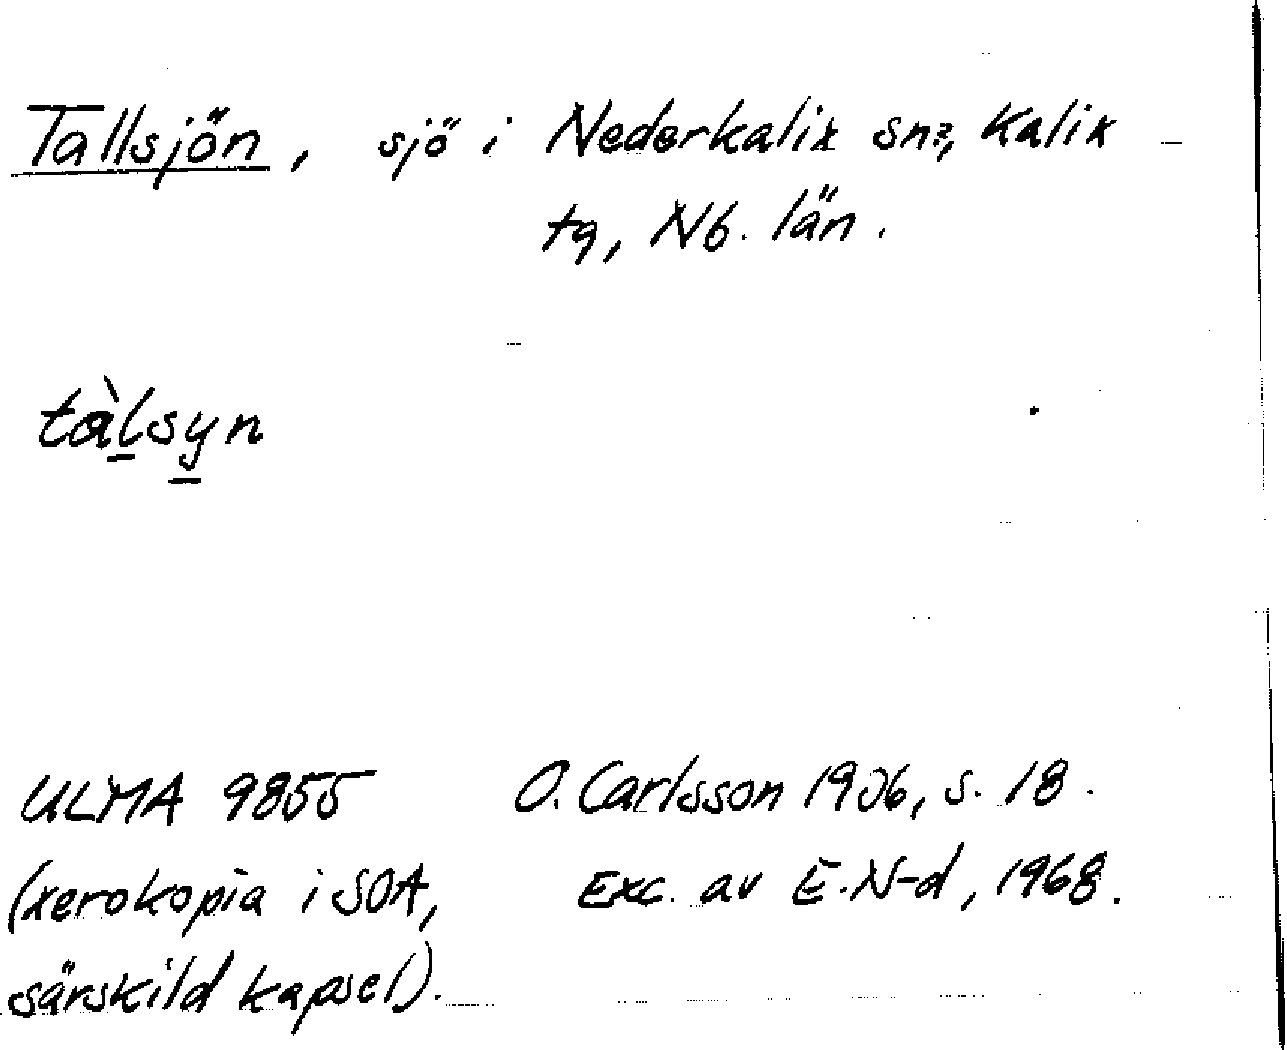 Tallsjön, sjö i Nederkalix sn?, Kalix
tg, Nb. län.
tàlsyn
ULMA 9855 O. Carlsson 1906, s. 18.
(xerokopia i SOA, Exc. av E.N-d, 1968.
särskild kapsel).